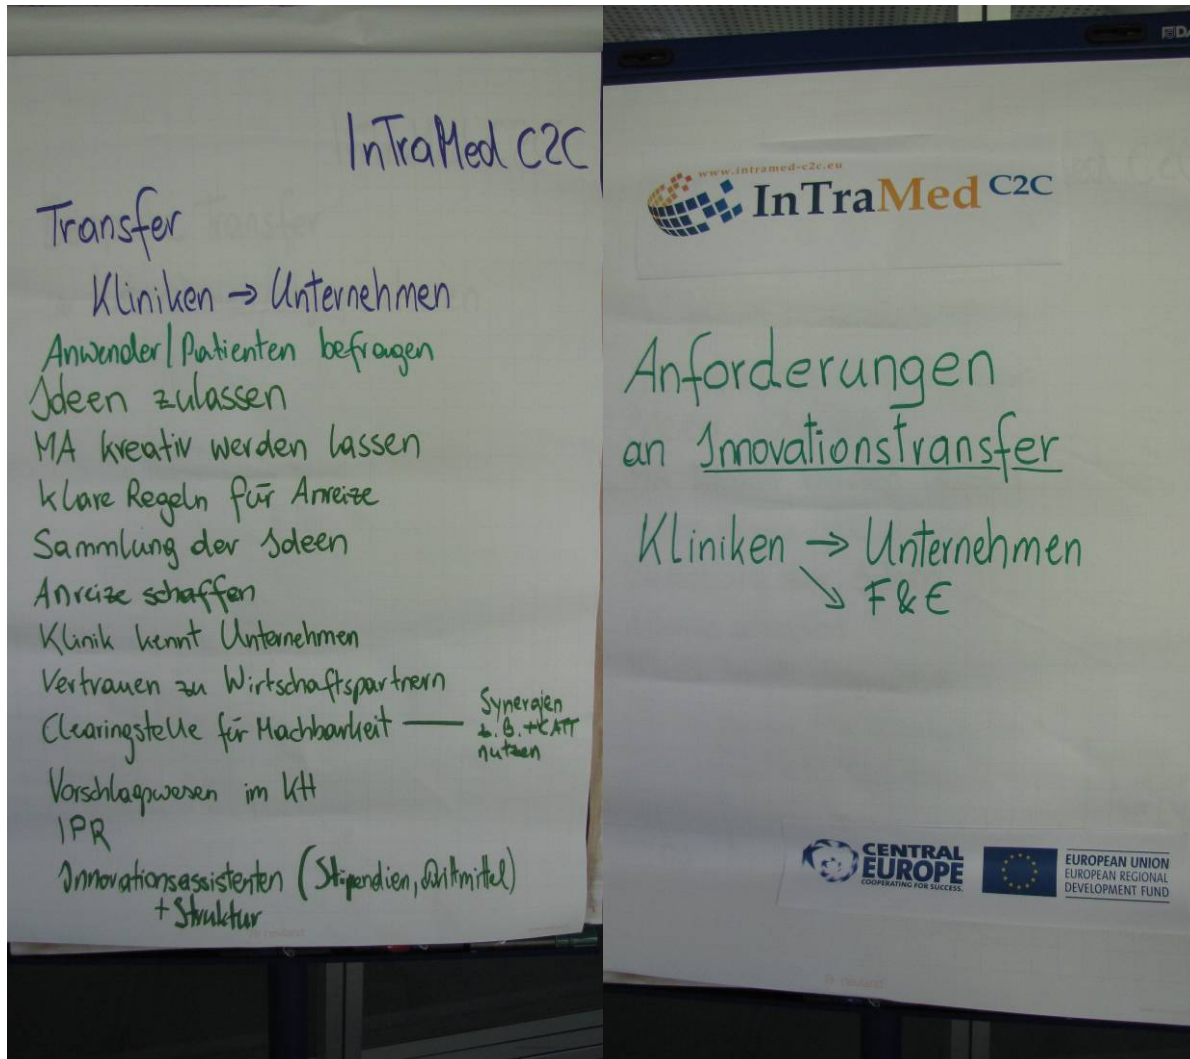 InTraMed C2C
Transfer
Kliniken → Unternehmen
Anwender/Patienten befragen
Ideen zulassen
MA kreativ werden lassen
klare Regeln für Anreize
Sammlung der Ideen
Anreize schaffen
Klinik kennt Unternehmen
Vertrauen zu Wirtschaftspartnern
Clearingstelle für Machbarkeit —— Synergien
z.B. nutzen
Vorschlagwesen im KH
IPR
Innovationsassistenten (Stipendien, Drittmittel)
+ Struktur
www.intramed-c2c.eu
InTraMed C2C
Anforderungen
an Innovationstransfer
Kliniken → Unternehmen
↘ F & E
CENTRAL
EUROPE
COOPERATING FOR SUCCESS.
EUROPEAN UNION
EUROPEAN REGIONAL
DEVELOPMENT FUND